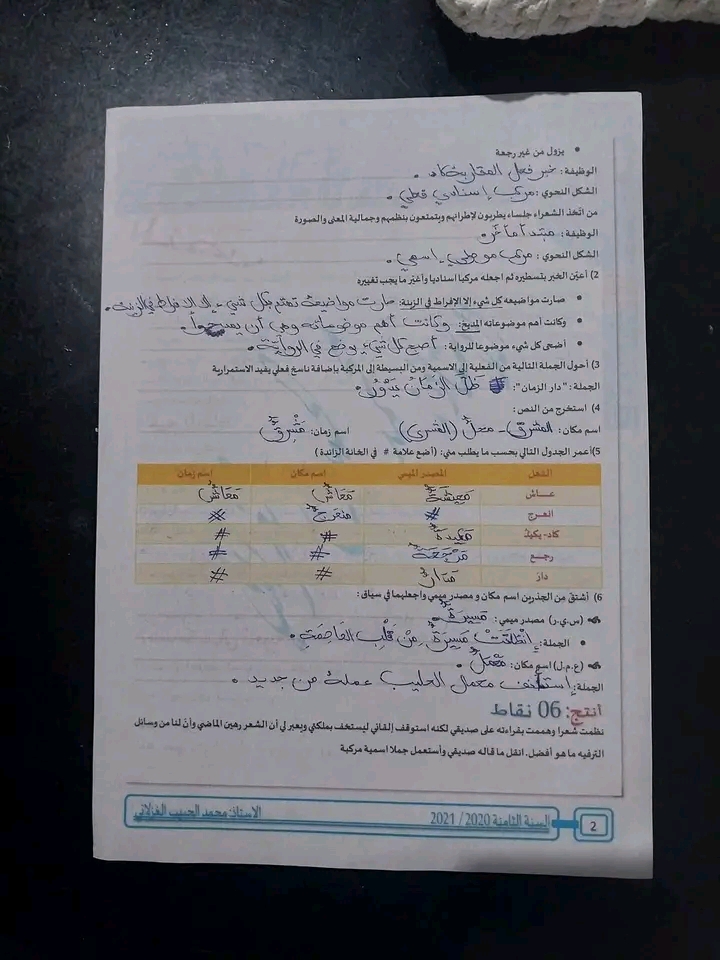 • يزول من غير رجعة
الوظيفة: خبر فعل المقاربة كاد.
الشكل النحوي: مركب إسنادي فعلي.
من اتخذ الشعراء جلساء يطربون لإطرابهم ويتمتعون بنظمهم وجمالية المعنى والصورة
الوظيفة: مبتدأ مأخر.
الشكل النحوي: مركب موصولي اسمي.
2) أعيّن الخبر بتسطيره ثم اجعله مركبا اسناديا وأغيّر ما يجب تغييره
• صارت مواضيعه كل شيء إلا الإفراط في الزينة: صارت مواضيعه تهتم بكل شيء إلا الإفراط في الزينة.
• وكانت أهم موضوعاته المديح: وكانت أهم موضوعاته وهي أن يمدحوا.
• أضحى كل شيء موضوعا للرواية: أصبح كل شيء يوضع في الرواية.
3) أحول الجملة التالية من الفعلية إلى الاسمية ومن البسيطة إلى المركبة بإضافة ناسخ فعلي يفيد الاستمرارية
الجملة: "دار الزمان": ظَلَّ الزَّمَانُ يَدُورُ.
4) استخرج من النص:
اسم مكان: المشرق - محلّ (القشري) اسم زمان: مَشْرِقٌ
5) أعمر الجدول التالي بحسب ما يطلب مني: (أضع علامة # في الخانة الزائدة)
الفعل المصدر الميمي اسم مكان اسم زمان
عاش مَعِيشَةٌ مَعَاشٌ مَعَاشٌ
العرج # منعرج #
كاد-يكيدُ مَكِيدَةٌ # #
رجع مَرْجَعَةٌ # #
دارَ مَدَارٌ # #
6) أشتق من الجذرين اسم مكان و مصدر ميمي واجعلهما في سياق:
(س.ي.ر) مصدر ميمي: مَسِيرَةٌ
• الجملة: انْطَلَقَتْ مَسِيرَةٌ مِنْ قَلْبِ العَاصِمَةِ.
(ع.م.ل) اسم مكان: مَعْمَلٌ.
الجملة: إستأنف معمل الحليب عمله من جديد.
أنتج: 06 نقاط
نظمت شعرا وهممت بقراءته على صديقي لكنه استوقف إلقائي ليستخف بملكتي ويعبر لي أن الشعر رهين الماضي وأنّ لنا من وسائل
الترفيه ما هو أفضل. انقل ما قاله صديقي وأستعمل جملا اسمية مركبة
2 السنة الثامنة 2020 / 2021 الاستاذ: محمد الحبيب الغزلاني